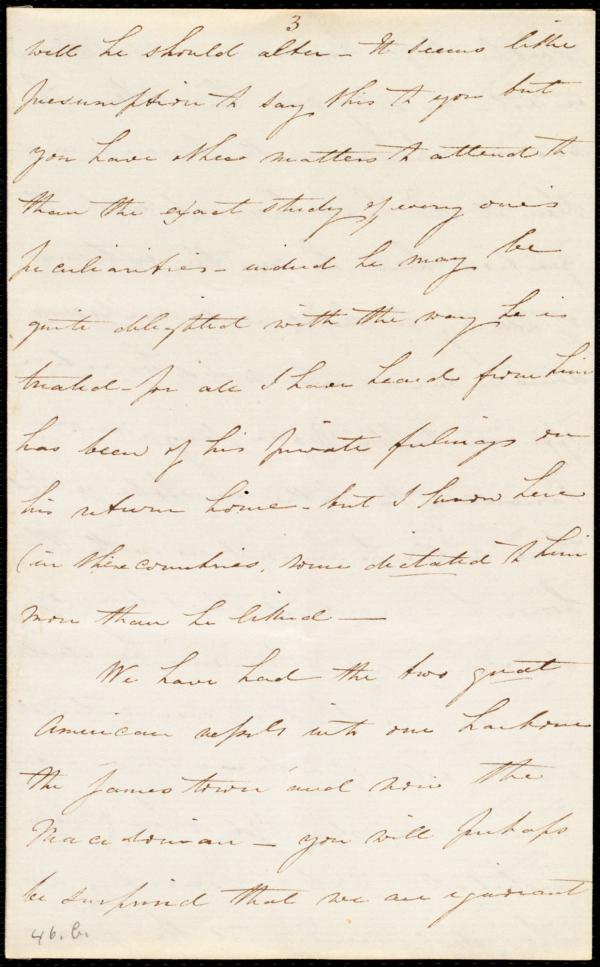 3
will he should alter - It seems like
presumption to say this to you but
you have other matters to attend to
than the exact study of every one's
peculiarities - indeed he may be
quite delighted with the way he is
treated - for all I have heard from him
has been of his private feelings on
his return home - but I know here
(in these countries, some dictated to him
more than he liked —
We have had the two great
American vessels into our harbour
the Jamestown and now the
Macedonian — you will perhaps
be surprised that we are ignorant
46. b.